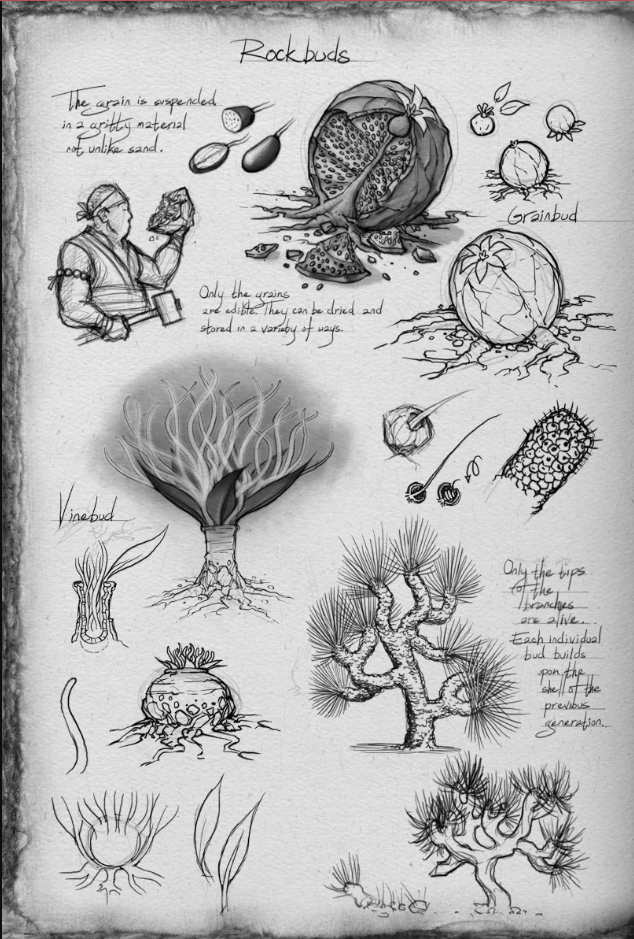 Rockbuds
The grain is suspended
in a gritty material
not unlike sand.
Grainbud
Only the grains
are edible. They can be dried and
stored in a variety of ways.
Vinebud
Only the tips
of the
branches
are alive.
Each individual
bud builds
upon the
shell of the
previous
generation.